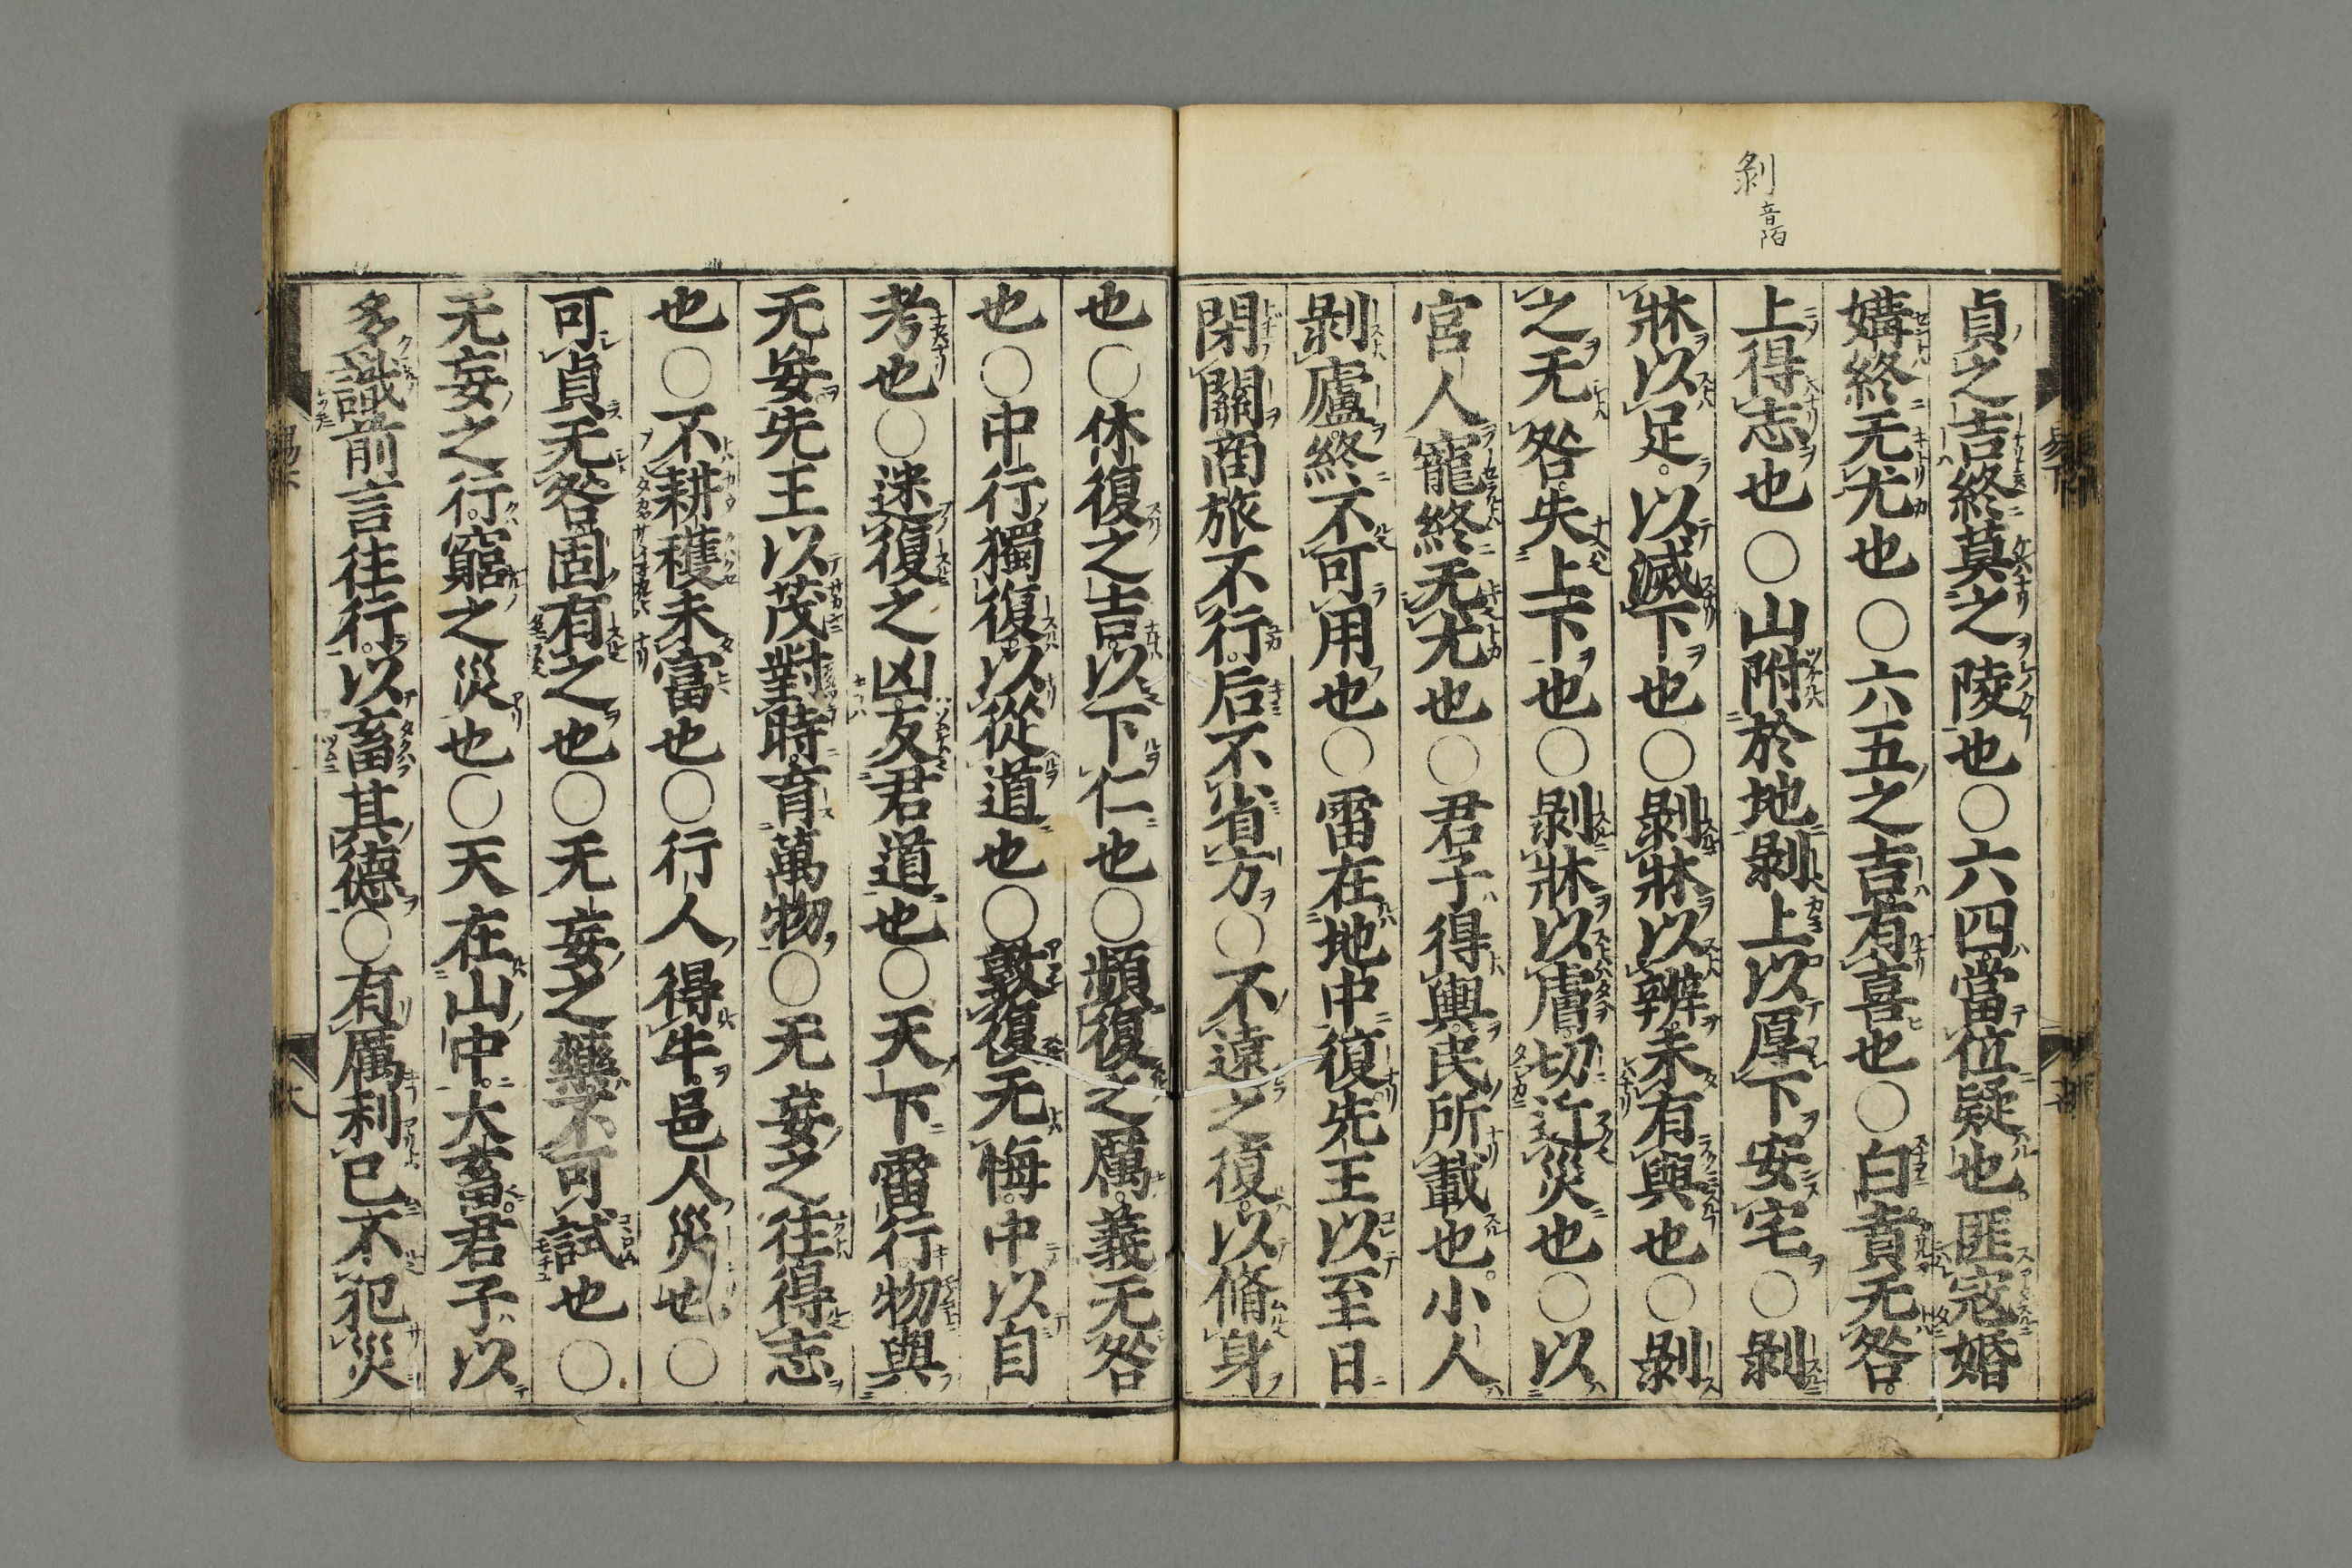 剝音陌
貞之吉終莫之陵也○六四當位疑也匪寇婚
媾終无尤也○六五之吉有喜也○白賁无咎
上得志也○山附於地剝上以厚下安宅○剝
牀以足以滅下也○剝牀以辨未有與也○剝
之无咎失上下也○剝牀以膚切近災也○以
宮人寵終无尤也○君子得輿民所載也小人
剝廬終不可用也○雷在地中復先王以至日
閉關商旅不行后不省方○不遠之復以脩身
也○休復之吉以下仁也○頻復之厲義无咎
也○中行獨復以從道也○敦復无悔中以自
考也○迷復之凶反君道也○天下雷行物與
无妄先王以茂對時育萬物○无妄之往得志
也○不耕穫未富也○行人得牛邑人災也○
可貞无咎固有之也○无妄之藥不可試也○
无妄之行窮之災也○天在山中大畜君子以
多識前言往行以畜其德○有厲利已不犯災